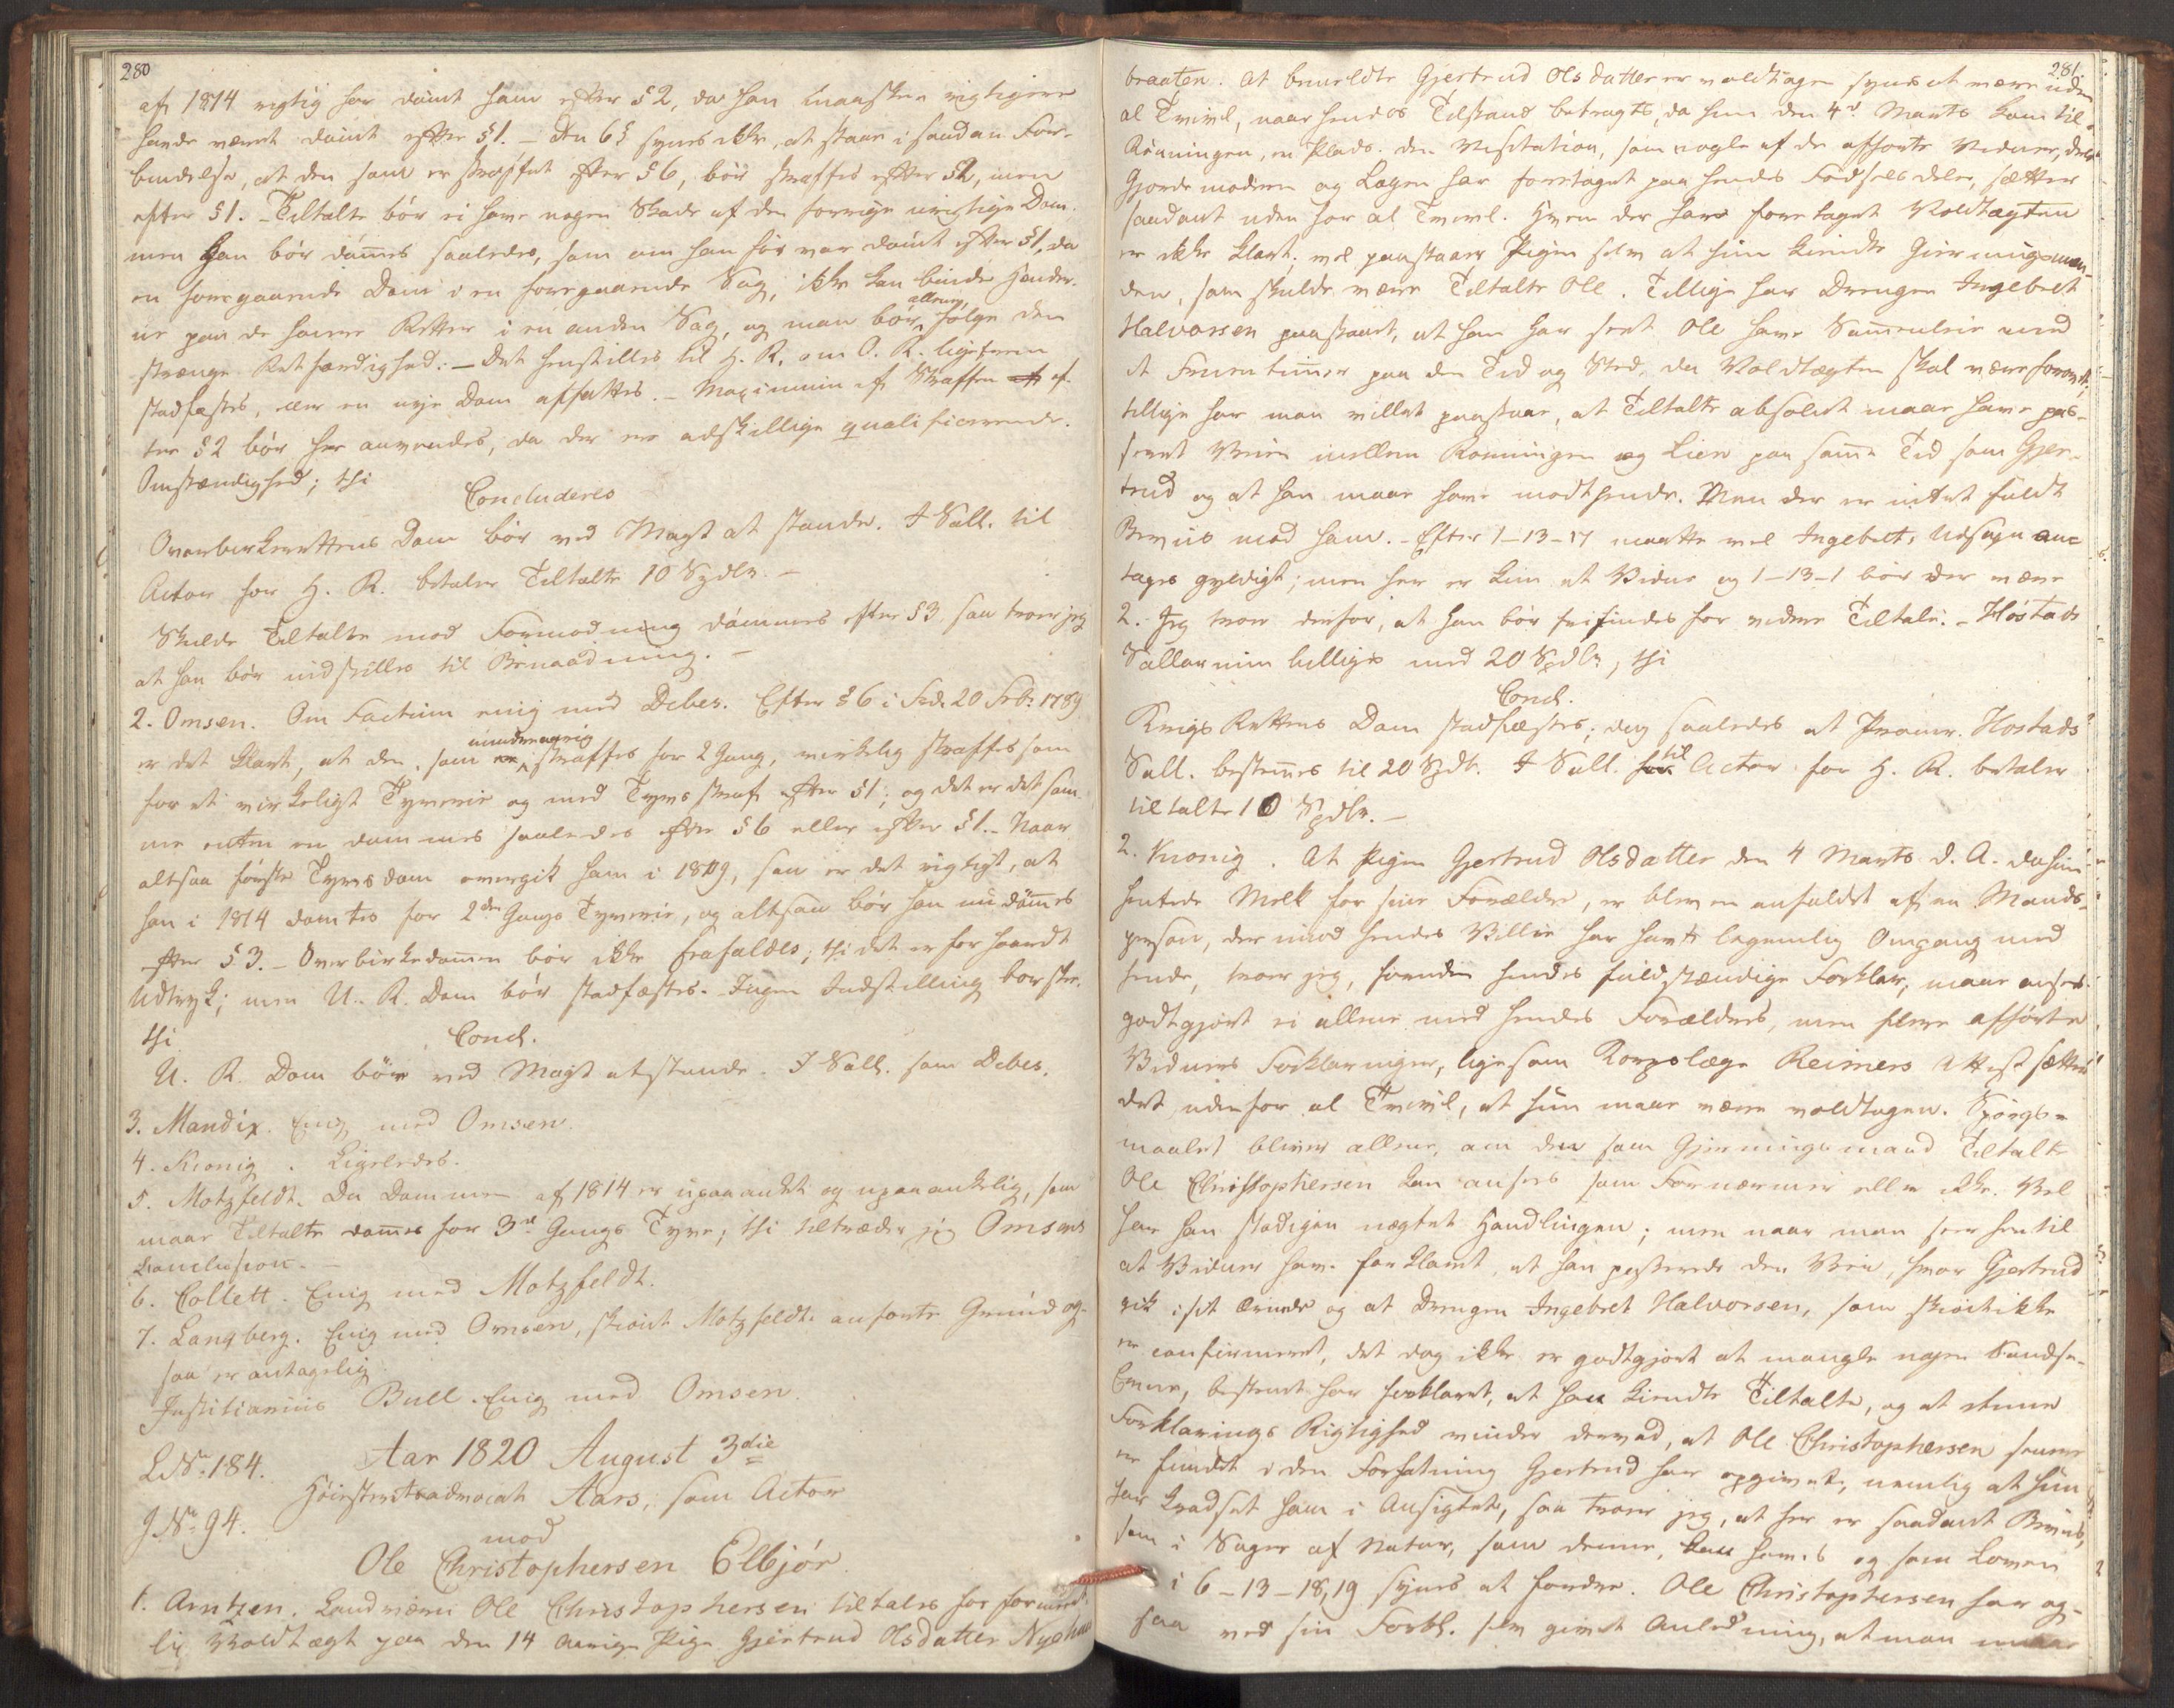 280
af 1814 rigtig har dömt ham efter § 2, da han maaskee rigtigere
havde været dömt efter § 1. – Den 6 § synes ikke, at staae i saadan For-
bindelse, at den som er straffet efter § 6, bör straffes efter § 2, men
efter § 1. – Tiltalte bör ei have nogen Skade af den forrige urigtige Dom.
men Han bör dömes saaledes, som om han för var dömt efter § 1, da
en foregaaende Dom i en foregaaende Sag, ikke kan binde Hænder-
ne paa de höiere Retter i en anden Sag, og man bör allene, fölge den
strænge Retfærdighed. – Det henstilles til H. R. om O. R. ligefrem
stadfæstes, eller en nye Dom affattes. – Maximum af Straffen af ef-
ter § 2 bör her anvendes, da der ere adskillige qualificerende
Omstændighed; thi
Concluderes
Overbirkerettens Dom bör ved Magt at stande. I Sall. til
Actor for H. R. betaler Tiltalte 10 Spdlr. –
Skulde Tiltalte mod Formodning dömmes efter § 3 saa troer jeg
at han bör indstilles til Benaadning. –
2. Omsen. Om Factum enig med Debes. Efter § 6 i Frd. 20 Feb: 1789
er det klart, at den, som er mindreaarig straffes for 2 Gang, virkelig straffes som
for et virkeligt Tyverie og med Tyvs straf efter § 1; og det er det sam-
me enten en dömmes saaledes efter § 6 eller efter § 1. – Naar
altsaa förste Tyvsdom overgik ham i 1809, saa er det rigtigt, at
han i 1814 dömtes for 2den Gangs Tyverie, og altsaa bör han nu dömes
efter § 3. – Overbirkedommen bör ikke frafaldes; thi det er for haardt
Udtryk; men U. R. Dom bör stadfæstes. Ingen Indstilling bör skee.
thi
Concl.
U. R. Dom bör ved Magt at stande. I Sall. som Debes.
3. Mandix. Enig med Omsen.
4. Kronig. Ligeledes.
5. Motzfeldt. Da Dommen af 1814 er upaaanket og upaaankelig, som
maae Tiltalte dömes for 3die Gangs Tyve; thi tiltræder jeg Omsens
Conclusion. –
6. Collett. Enig med Motzfeldt.
7. Langberg. Enig med Omsen, skiönt Motzfeldts anförte Grund og-
saa er antagelig
Justitiarius Bull. Enig med Omsen.
L.No. 184. Aar 1820 August 3die
Höiesteretsadvocat Aars, som Actor
J.No. 94.
mod
Ole Christophersen Elbjör
1. Arntzen. Landværn Ole Christophersen tiltales for formeent-
lig Voldtægt paa den 14 aarige Pige Gjertrud Olsdatter
281
braaten. At bemeldte Gjertrud Olsdatter er voldtagen synes at være uden
al Tvivl, naar hendes Tilstand betragtes, da hun den 4de Marts kom til
Rönningen, en Plads. Den Visitation, som nogle af de afhörte Vidner,
Gjordemoderen og Lægen har foretaget paa hendes Födselsdele, sætter
saadant uden for al Tvivl. Hvem der har foretaget Voldtægten
er ikke klart; vel paastaaer Pigen selv at hun kiendte Gierningsman-
den, som skulde være Tiltalte Ole. Tillige har Drengen Ingebret
Halvorsen paastaaet, at han har seet Ole have Sammenleie med
et Fruentimmer paa den Tid og Sted, da Voldtægten skal være forövet;
tillige har man villet paastaae, at Tiltalte absolut maae have pas-
seret Veien mellem Rönningen og Lien paa samme Tid som Gjer-
trud og at han maae have mödt hende. Men der er intet fuldt
Beviis mod ham. – Efter 1–13–17 maatte vel Ingebrets Udsagn an-
tages gyldigt; men her er kun et Vidne og 1–13–1 bör der være
2. Jeg troer derfor, at han bör frifindes for videre Tiltale. – Höstads
Sallarium billiges med 20 Spdlr, thi
Concl.
Krigs Rettens Dom stadfæstes; dog saaledes at Procur. Hostads
Sall. bestemmes til 20 Spdlr. I Sall. for til Actor for H. R. betaler
tiltalte 10 Spdlr. –
2. Kronig. At Pigen Gjertrud Olsdatter den 4 Marts d. A. da hun
hentede Melk for sine Forældre, er bleven anfaldet af en Mands-
person, der mod hendes Villie har havt legemlig Omgang med
hende, troer jeg, foruden hendes fuldstændige Forklar, maae ansees
godtgjort ei allene med hendes Forældres, men flere afhörte
Vidners Forklaringer, ligesom Korpslæge Reimers Attest sætter
det udenfor al Tvivl, at hun maae være voldtagen. Spörgs-
maalet bliver allene, om den som Gjerningsmand Tiltalte
Ole Christophersen kan ansees som Fornærmer eller ikke. Vel
har han stadigen nægtet Handlingen; men naar man seer hen til
at Vidner have forklaret, at han passerede den Vei, hvor Gjertrud
gik i sit Ærinde og at Drengen Ingebret Halvorsen, som skiöndt ikke
er confirmeret, det dog ikke er godtgjort at mangle nogen Sandse-
Evne, bestemt har forklaret, at han kiendte Tiltalte, og at denne
Forklarings Rigtighed vinder derved, at Ole Christophersen senere
er fundet i den Forfatning Gjertrud har opgivet, nemlig at hun
har kradset ham i Ansigtet, saa troer jeg, at her er saadant Beviis,
som i Sager af Natur, som denne, kan haves og som Loven
i 6–13–18,19 synes at fordre. Ole Christophersen har og-
saa ved sin Forkl. selv givet Anledning, at man maae